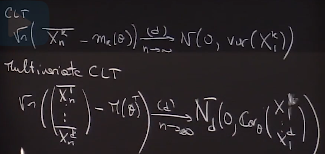 CLT
√n( \overline{X_n^k} - m_k(θ)) \xrightarrow[n→∞]{(d)} N(0, var(X_1^k))
Multivariate CLT
√n( ( \overline{X_n^1} ⋮ \overline{X_n^d} ) - M(θ) ) \xrightarrow[n→∞]{(d)} N_d(0, Cov_θ( X_1^1 ⋮ X_1^d ))